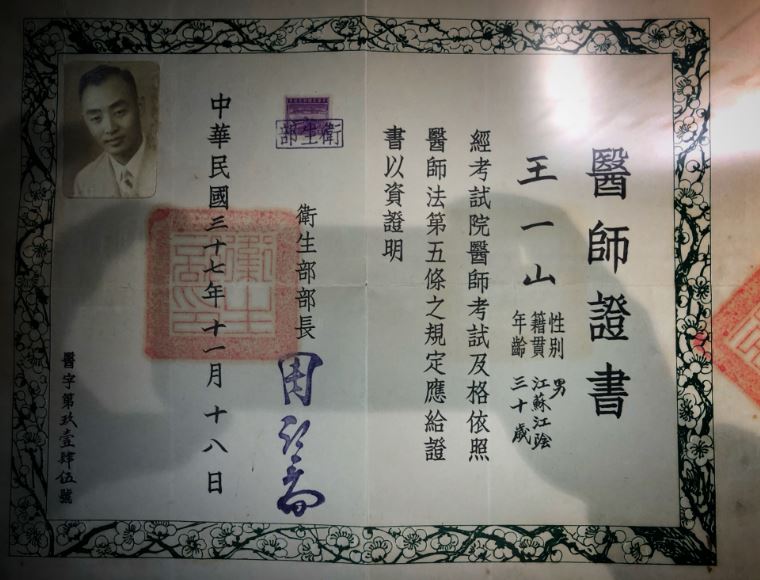 醫師證書
王一山
性別 男
籍貫 江蘇江陰
年齡 三十歲
經考試院醫師考試及格依照
醫師法第五條之規定應給證
書以資證明
衛生部
衛生部部長
中華民國三十七年十一月十八日
醫字第玖壹肆伍號
衛生部印